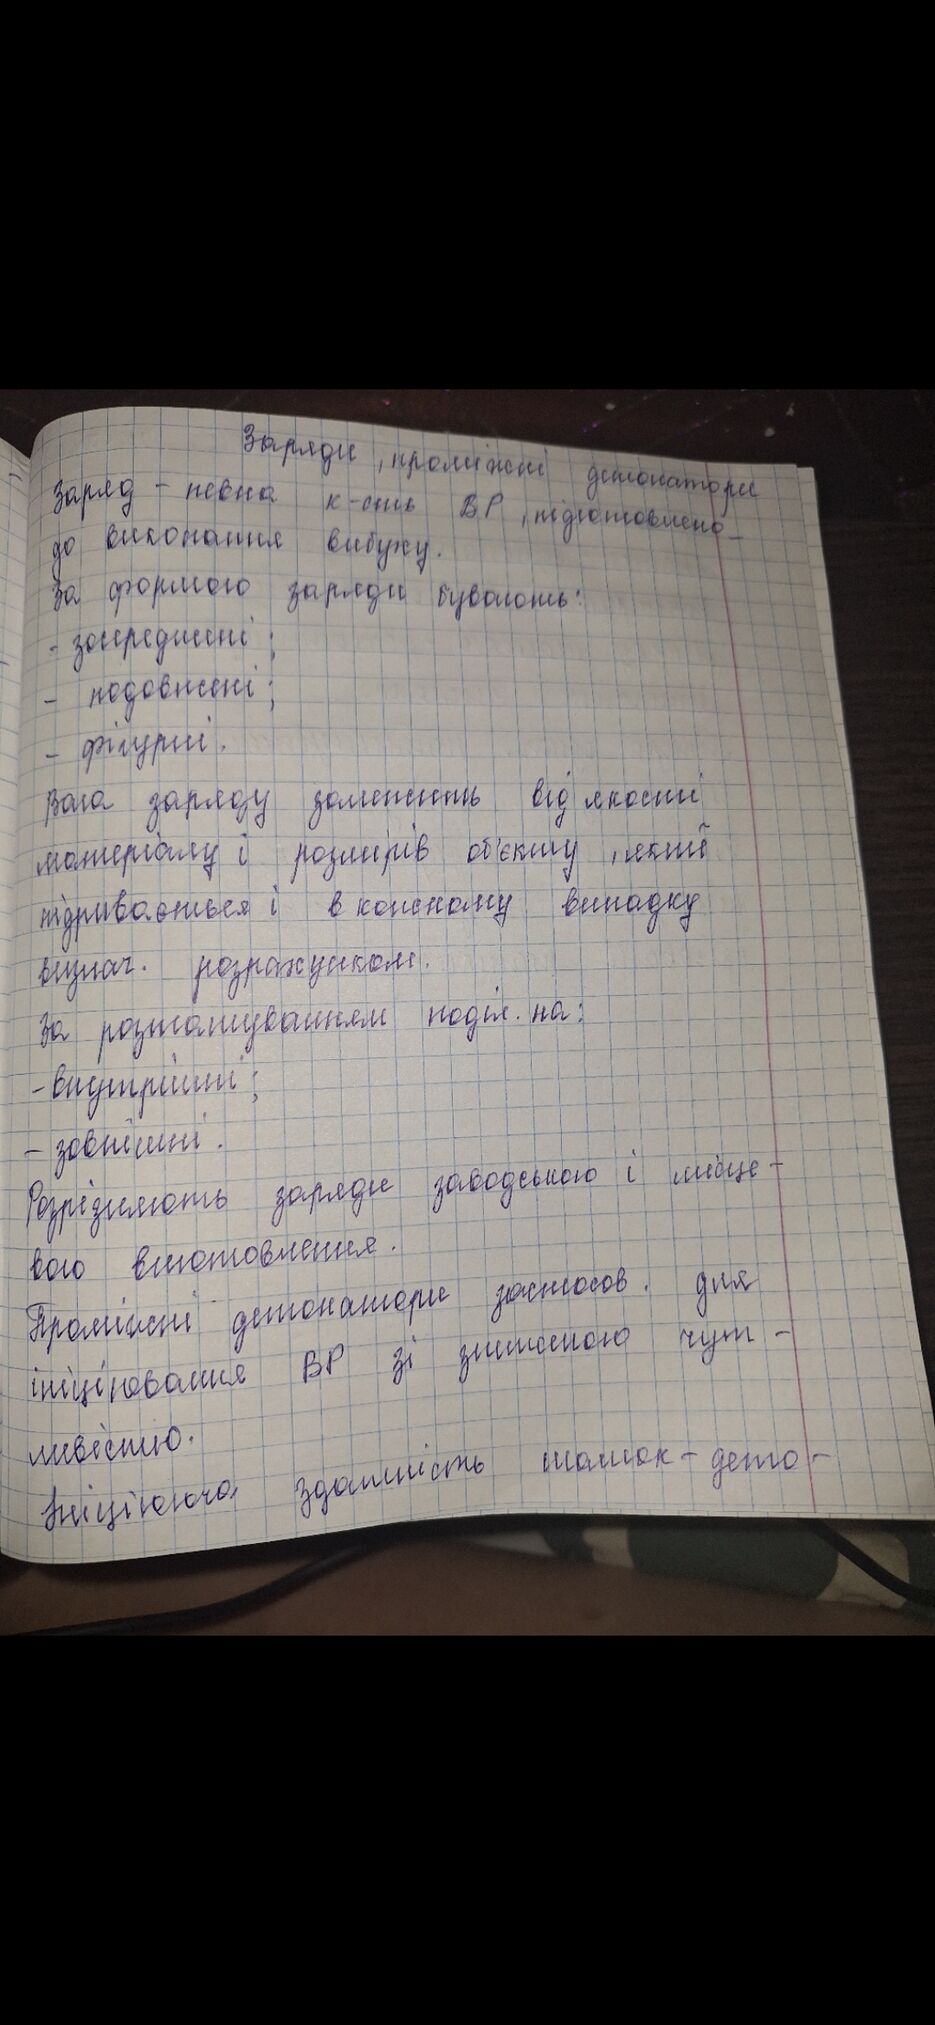 Заряди, проміжні детонатори
Заряд - певна к-сть ВР, підготовлено
до виконання вибуху.
За формою заряди бувають:
- зосереджені;
- подовжені;
- фігурні.
Вага заряду залежить від якості
матеріалу і розмірів об'єкту, який
підривається і в кожному випадку
визнач. розрахунком.
За розташуванням поділ. на:
- внутрішні;
- зовнішні.
Розрізняють заряди заводського і місце-
вого виготовлення.
Проміжні детонатори застосов. для
ініціювання ВР зі зниженою чут-
ливістю.
Ініціююча здатність шашок - дето-